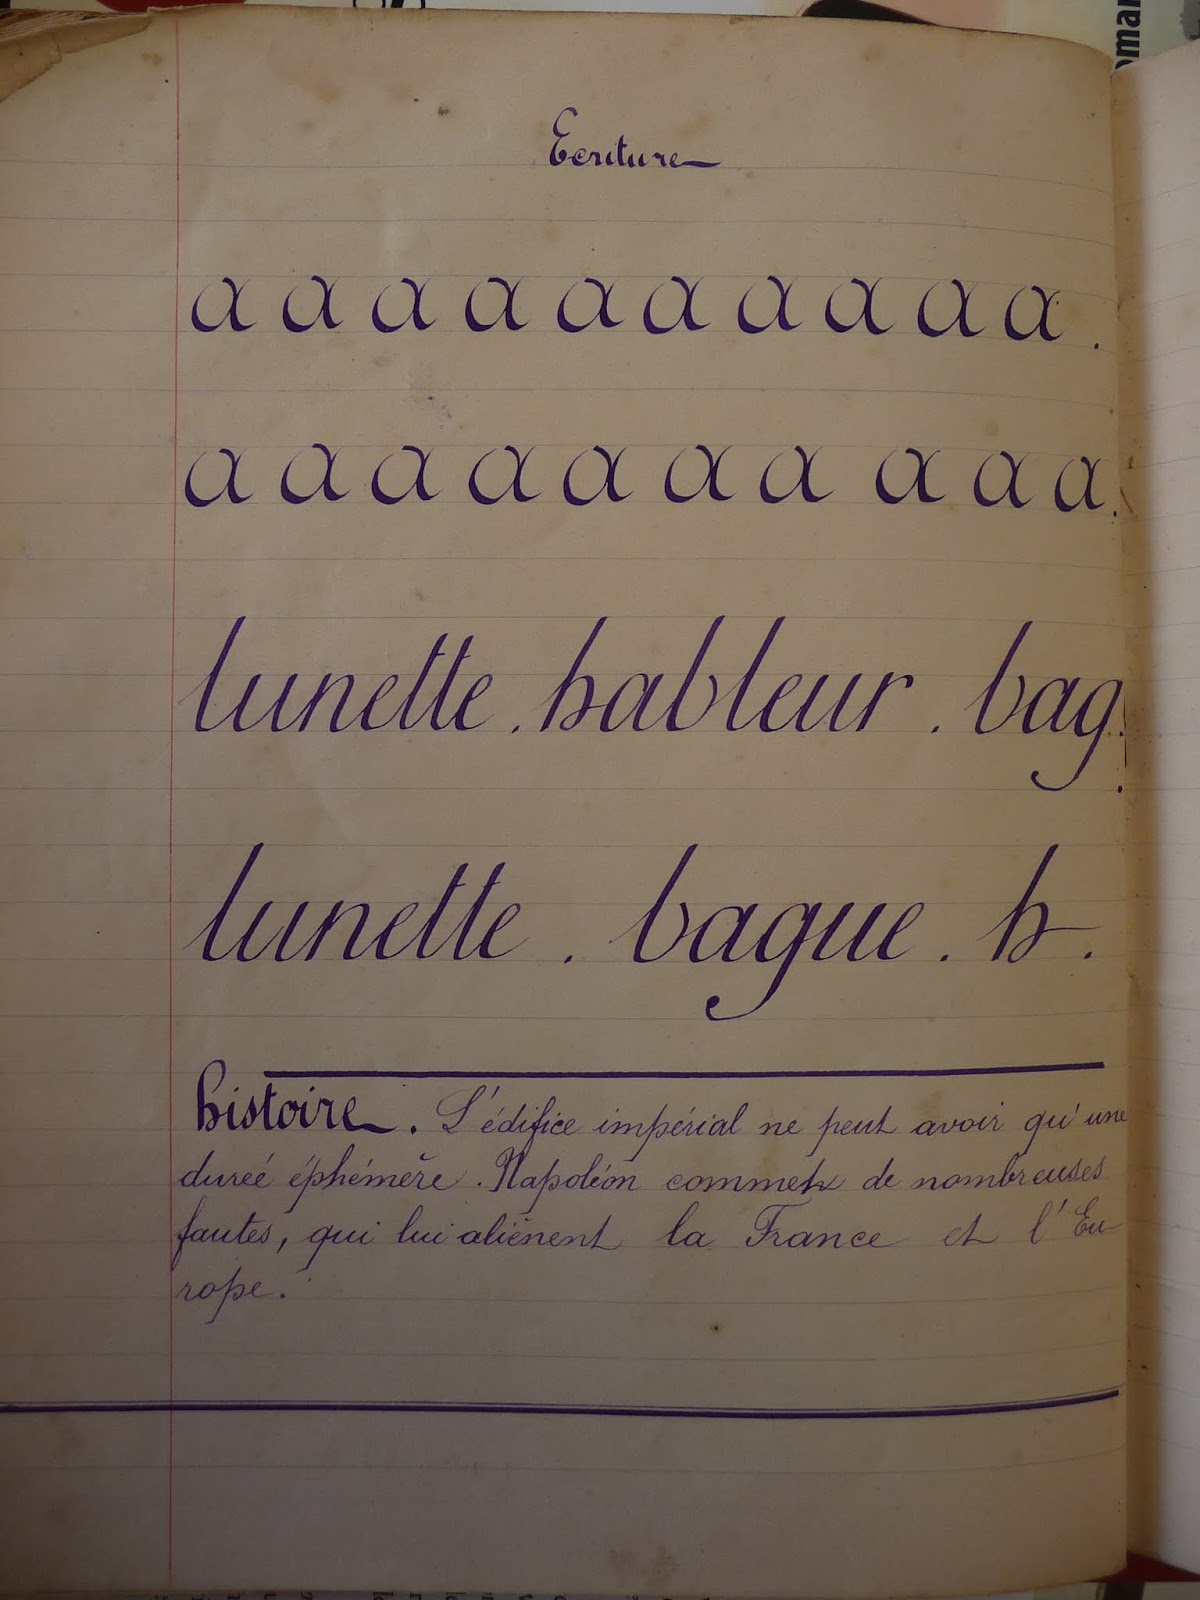 Ecriture
a a a a a a a a a a .
a a a a a a a a a a .
lunette . hableur . bag.
lunette . bague . h .
histoire . L'édifice impérial ne peut avoir qu'une
dureé éphémère . Napoléon commet de nombreuses
fautes, qui lui aliènent la France et l'Eu-
rope .